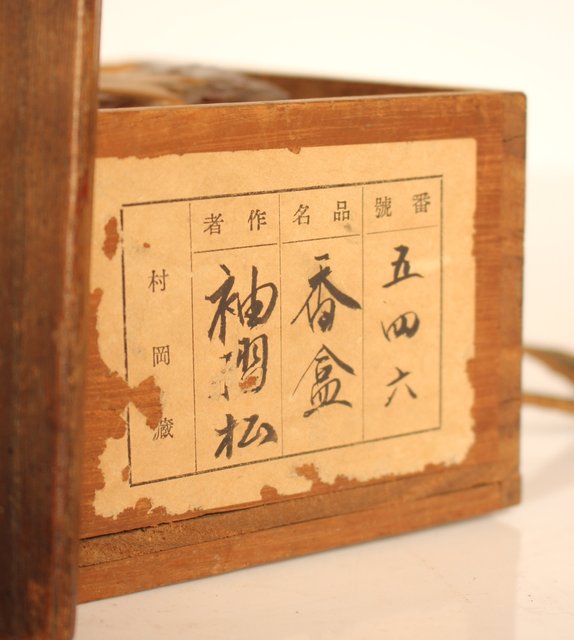 番號
五四六
品名
香盒
作者
袖摺松
村岡藏